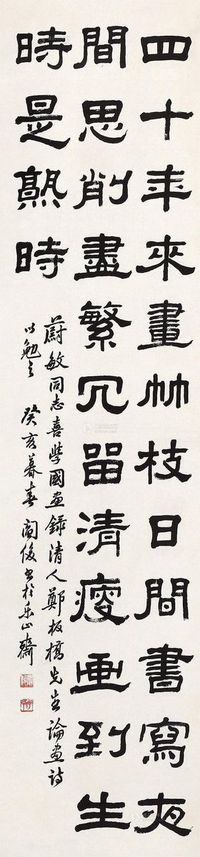 四十年來畫竹枝日間書寫夜
間思削盡繁冗留清瘦画到生
時是熟時
蔚敏同志喜学國画錄清人鄭板橋先生論画诗
以勉之 癸亥暮春 阎俊书於乐山齋